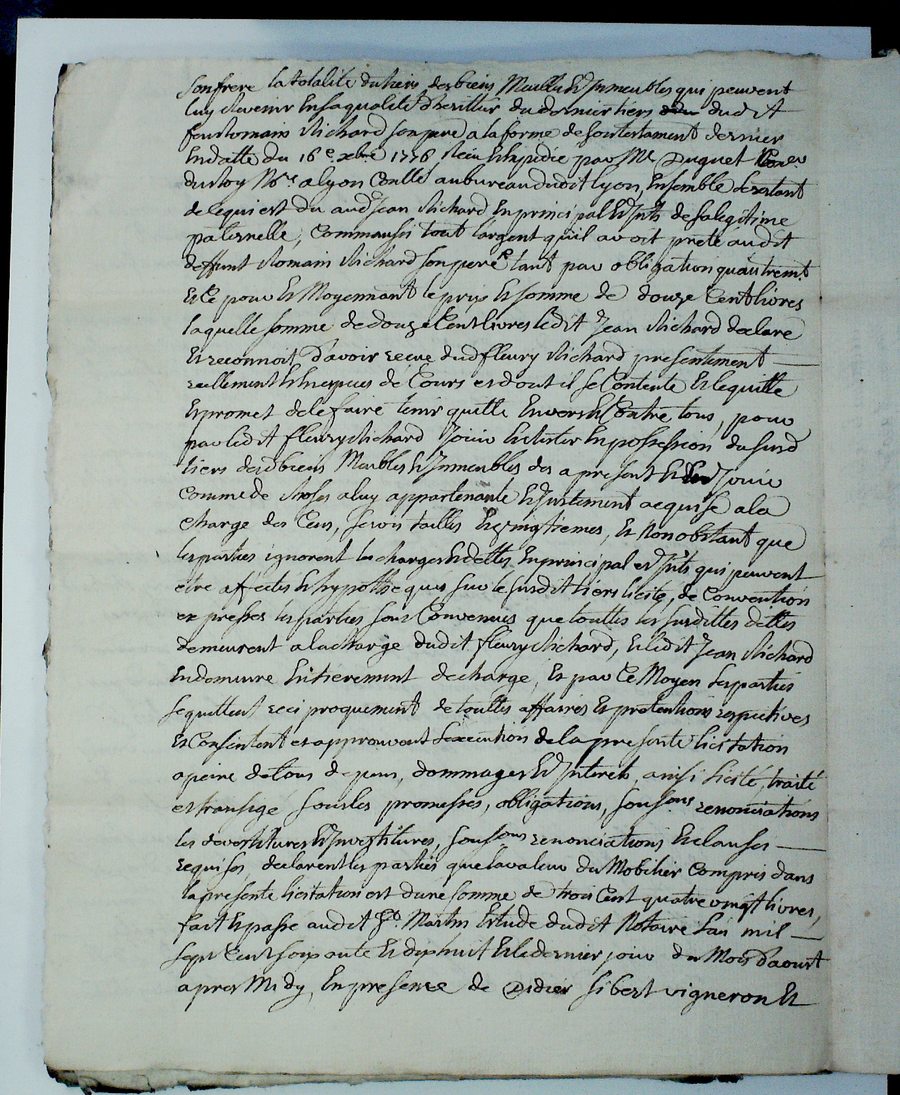 son frere la totalité du tiers des biens Meubles et Immeubles qui peuvent
luy devenir En sa qualité d'heritier du dernier tiers dudit
feu Romain Richard son pere a la forme de son testament dernier
En datte du 16e xbre 1776, Receu Et Expedié par Me Duguet
du Roy Nre a lyon Contlé au bureau dudit lyon, Ensemble le restant
de ce qui est du aud Jean Richard En principal Et Jnts de sa legitime
paternelle, Comm'aussi tout l'argent quil avoit preté audit
deffunt Romain Richard son pere tant par obligation qu'autremt.
Et Ce pour Et Moyennant le prix Et somme de douze Cent livres
laquelle somme de douze Cent livres ledit Jean Richard declare
Et reconnoit d'avoir reçue dud fleury Richard presentement
reellement Et En especes de Cours et dont il se Contente Et le quitte
Et promet de le faire tenir quitte Envers Et Contre tous, pour
par ledit fleury Richard Jouir Et Entrer En possession du susd
tiers desd biens Meubles Et Jmmeubles des a present Et En Jouir
Comme de Choses a luy appartenante Et Justement acquise a la
Charge des Cens, servis tailles Et vingtiemes, Et Nonobstant que
les parties ignorent les charges Et dettes En principal et Jnts qui peuvent
etre affectés Et hypotheques sur le susdit tiers licité, de Convention
expresse les parties sont Convenues que touttes les susdittes dettes
demeurent a la charge dudit fleury Richard, Et ledit Jean Richard
En demeure Entierement dechargé, Et par Ce Moyen les parties
se quittent reciproquement de touttes affaires Et pretentions respectives
Et Consentent et approuvent L'execution de la presente licitation
a peine de tous depens, dommages Et Jnterets, ainsi licité, traité
et transigé sous les promesses, obligations, soumons renonciations
les devestitures Et Jnvestitures, soumons renonciations Et clauses
requises, declarent les parties que la valeur du Mobilier Compris dans
la presente licitation est d'une somme de trois Cent quatre vingt livres,
fait Et passé audit St. Martin Etude dudit Notaire L'an mil
sept Cent soixante Et dix huit Et le dernier jour du Mois d'aoust
apres Midy, En presence de Didier Sibert vigneron Et